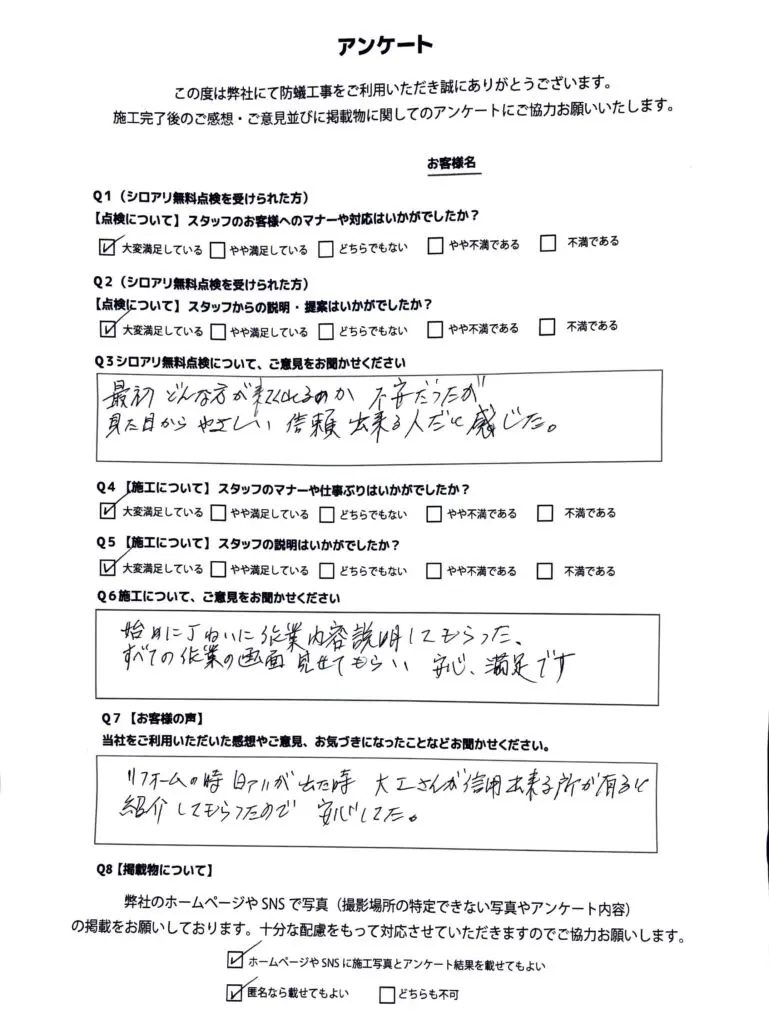 アンケート
この度は弊社にて防蟻工事をご利用いただき誠にありがとうございます。
施工完了後のご感想・ご意見並びに掲載物に関してのアンケートにご協力お願いいたします。
お客様名
Q1（シロアリ無料点検を受けられた方）
【点検について】スタッフのお客様へのマナーや対応はいかがでしたか？
☑ 大変満足している □ やや満足している □ どちらでもない □ やや不満である □ 不満である
Q2（シロアリ無料点検を受けられた方）
【点検について】スタッフからの説明・提案はいかがでしたか？
☑ 大変満足している □ やや満足している □ どちらでもない □ やや不満である □ 不満である
Q3シロアリ無料点検について、ご意見をお聞かせください
最初 どんな方が来てくれるのか 不安だったが
見た目から やさしい 信頼 出来る人だと感じた。
Q4【施工について】スタッフのマナーや仕事ぶりはいかがでしたか？
☑ 大変満足している □ やや満足している □ どちらでもない □ やや不満である □ 不満である
Q5【施工について】スタッフの説明はいかがでしたか？
☑ 大変満足している □ やや満足している □ どちらでもない □ やや不満である □ 不満である
Q6施工について、ご意見をお聞かせください
始めに丁ねいに作業内容説明してもらった、
すべての作業の画面 見せてもらい 安心、満足です
Q7【お客様の声】
当社をご利用いただいた感想やご意見、お気づきになったことなどお聞かせください。
リフォームの時 白アリが出た時 大工さんが信用出来る所が有ると
紹介してもらったので 安心した。
Q8【掲載物について】
弊社のホームページやSNSで写真（撮影場所の特定できない写真やアンケート内容）
の掲載をお願いしております。十分な配慮をもって対応させていただきますのでご協力お願いします。
☑ ホームページやSNSに施工写真とアンケート結果を載せてもよい
☑ 匿名なら載せてもよい □ どちらも不可